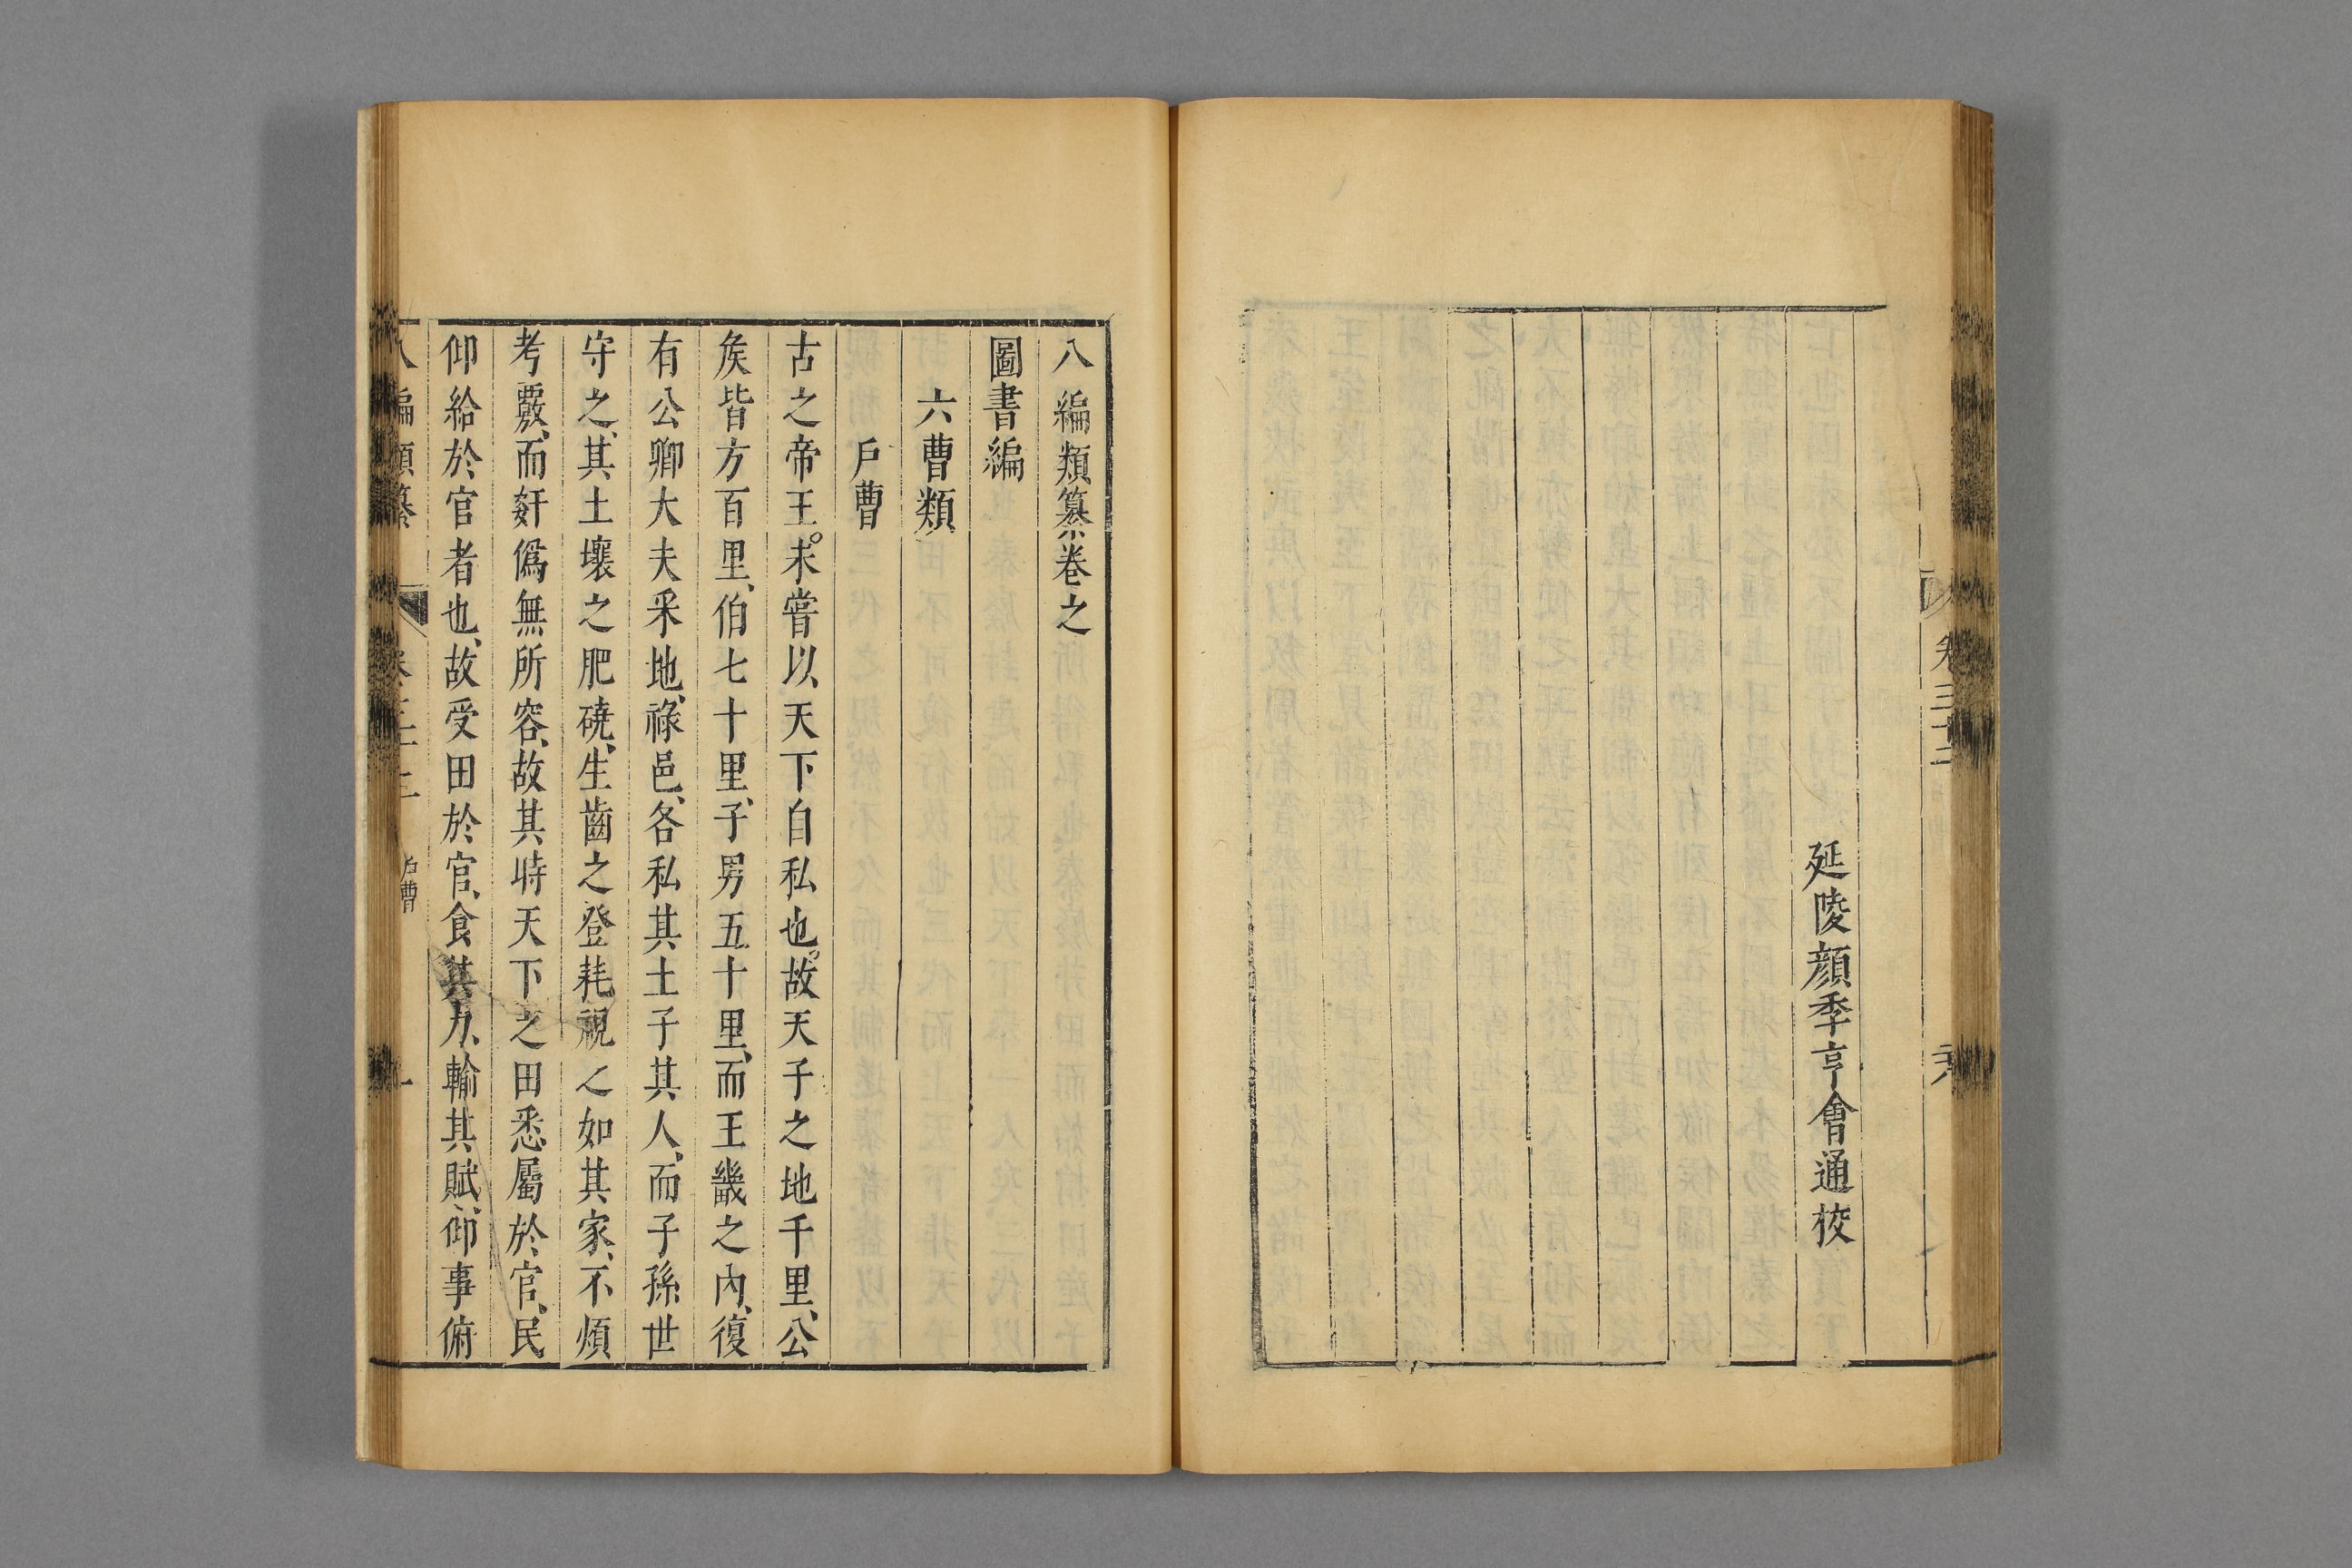 延陵顔季亨會通校
八編類纂卷之
圖書編
六曹類
戶曹
古之帝王。未嘗以天下自私也。故天子之地千里、公
矦皆方百里、伯七十里、子男五十里、而王畿之內、復
有公卿大夫采地、祿邑、各私其土子其人、而子孫世
守之、其土壤之肥磽、生齒之登耗、視之如其家、不煩
考覈、而姧僞無所容、故其時天下之田悉屬於官、民
仰給於官者也、故受田於官、食其力、輸其賦、仰事俯
八編類纂
戶曹